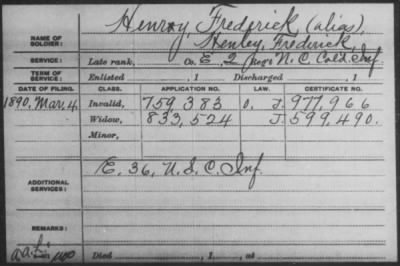 Henry, Frederick (alias),
NAME OF SOLDIER: Henley, Frederick,
SERVICE: Late rank, Co. E, 2 Reg't N. C. Cold Inf.
TERM OF SERVICE: Enlisted , 1 Discharged , 1
DATE OF FILING. CLASS. APPLICATION NO. LAW. CERTIFICATE NO.
1890, Mar, 4. Invalid, 759,383 O. J. 977,966
Widow, 833,524 J. 599,490.
Minor,
ADDITIONAL SERVICES: E. 36, U. S. C. Inf.
REMARKS:
Died , 1 , at